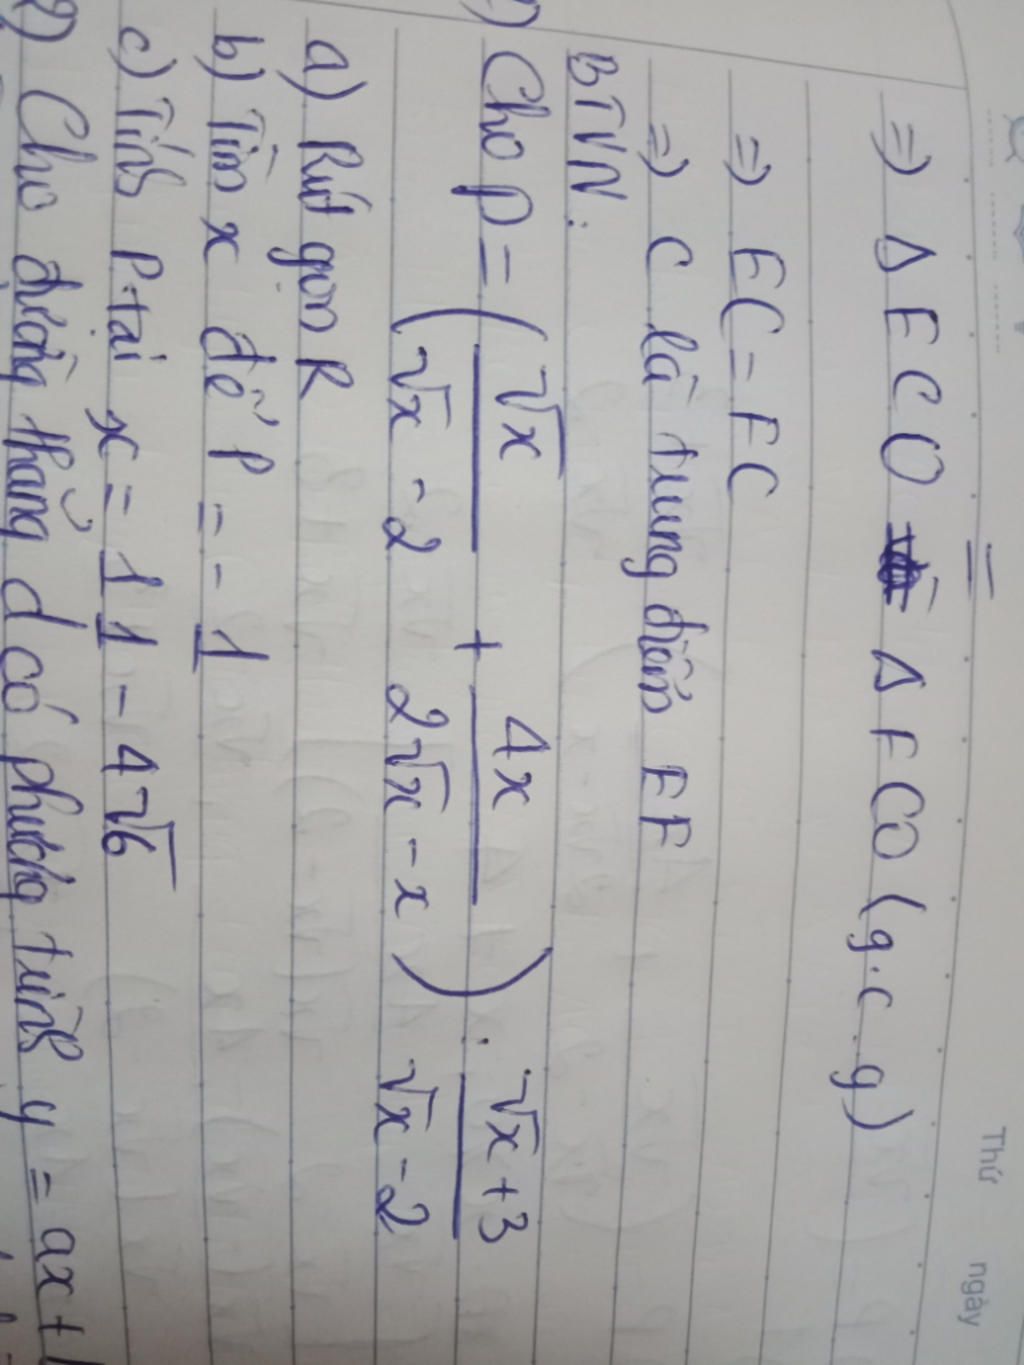 Thứ
ngày
=> Δ ECO = Δ FCO (g.c.g)
=> EC = FC
=> C là trung điểm EF
BTVN:
1) Cho P = (√x / (√x - 2) + 4x / (2√x - x)) : (√x + 3) / (√x - 2)
a) Rút gọn R
b) Tìm x để P = -1
c) Tính P tại x = 11 - 4√6
2) Cho đường thẳng d có phương trình y = ax +